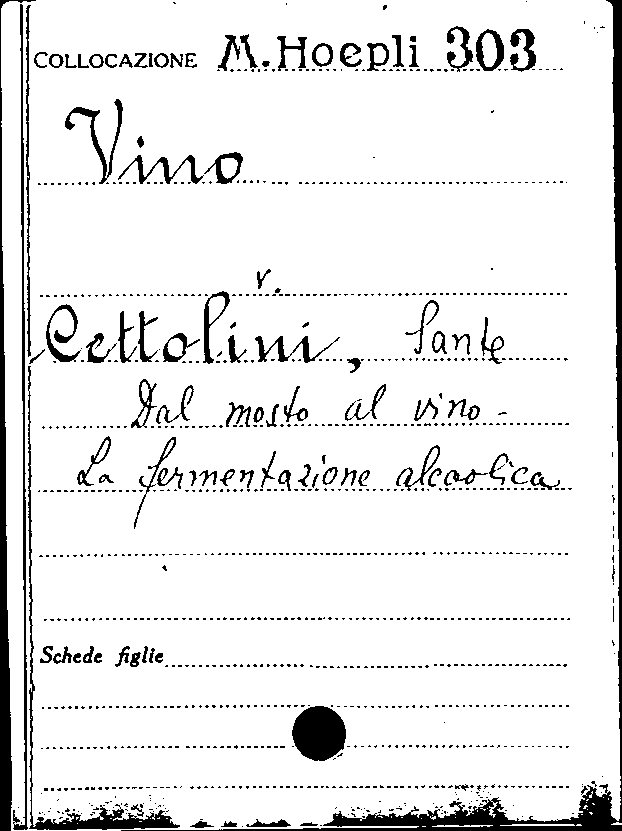 COLLOCAZIONE M. Hoepli 303
Vino
v.
Cettolini, Sante
Dal mosto al vino -
La fermentazione alcoolica
Schede figlie